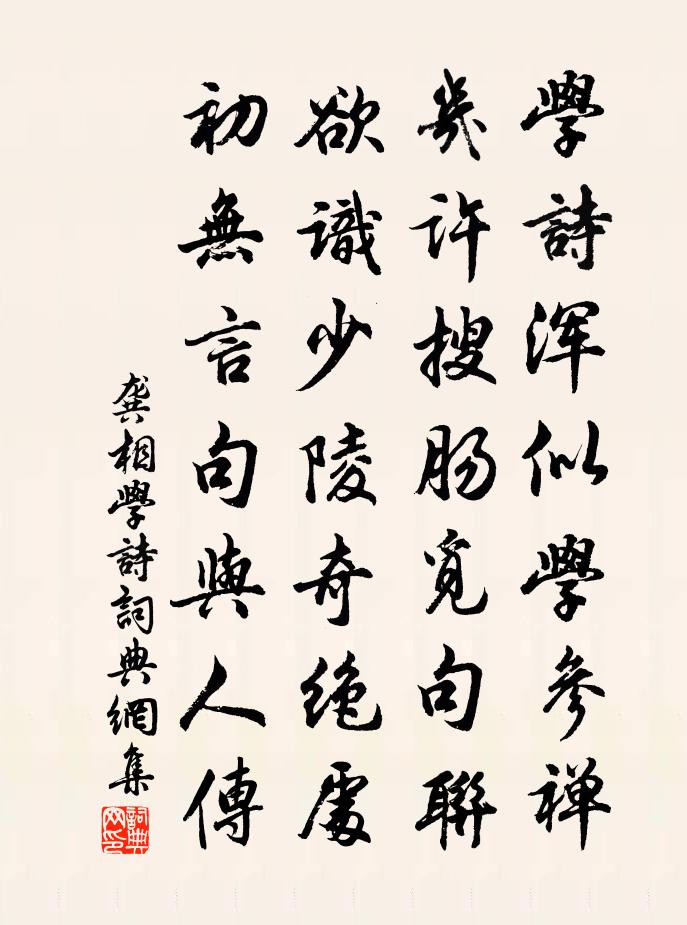 學詩浑似學参禅
幾許搜肠覓句聯
欲識少陵奇绝處
初無言句與人傳
龔相學詩詞典網集
詞典网印